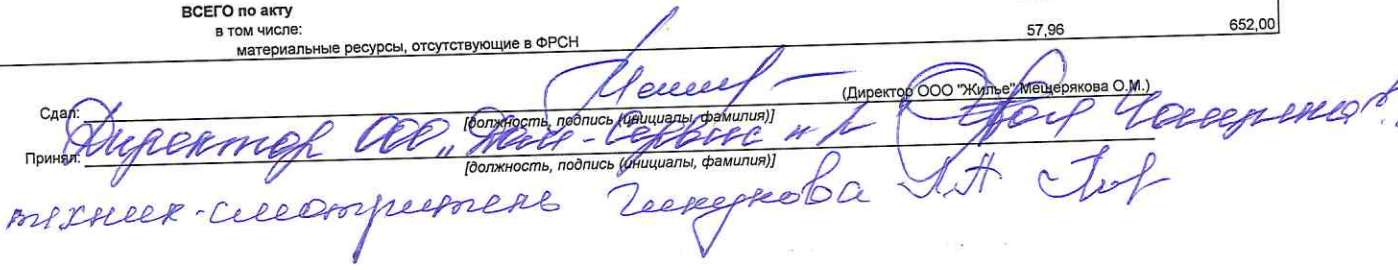 ВСЕГО по акту
в том числе:
материальные ресурсы, отсутствующие в ФРСН 57,96 652,00
Сдал: (Директор ООО "Жилье" Мещерякова О.М.)
[должность, подпись (инициалы, фамилия)]
Принял: Директор ООО
[должность, подпись (инициалы, фамилия)]
техник-смотритель